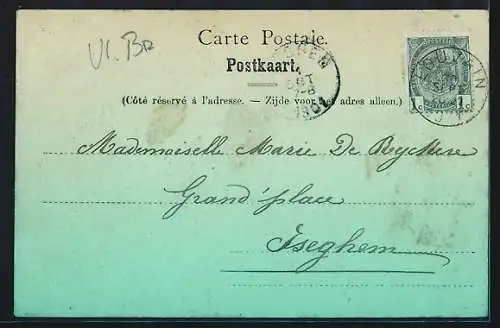 Vl. Br
Carte Postale.
Postkaart.
(Côté réservé à l'adresse. — Zijde voor het adres alleen.)
LOUVAIN
SEPT
1 C 1 C
OCT
7-8
Mademoiselle Marie De Ryckere
Grand'place
Iseghem